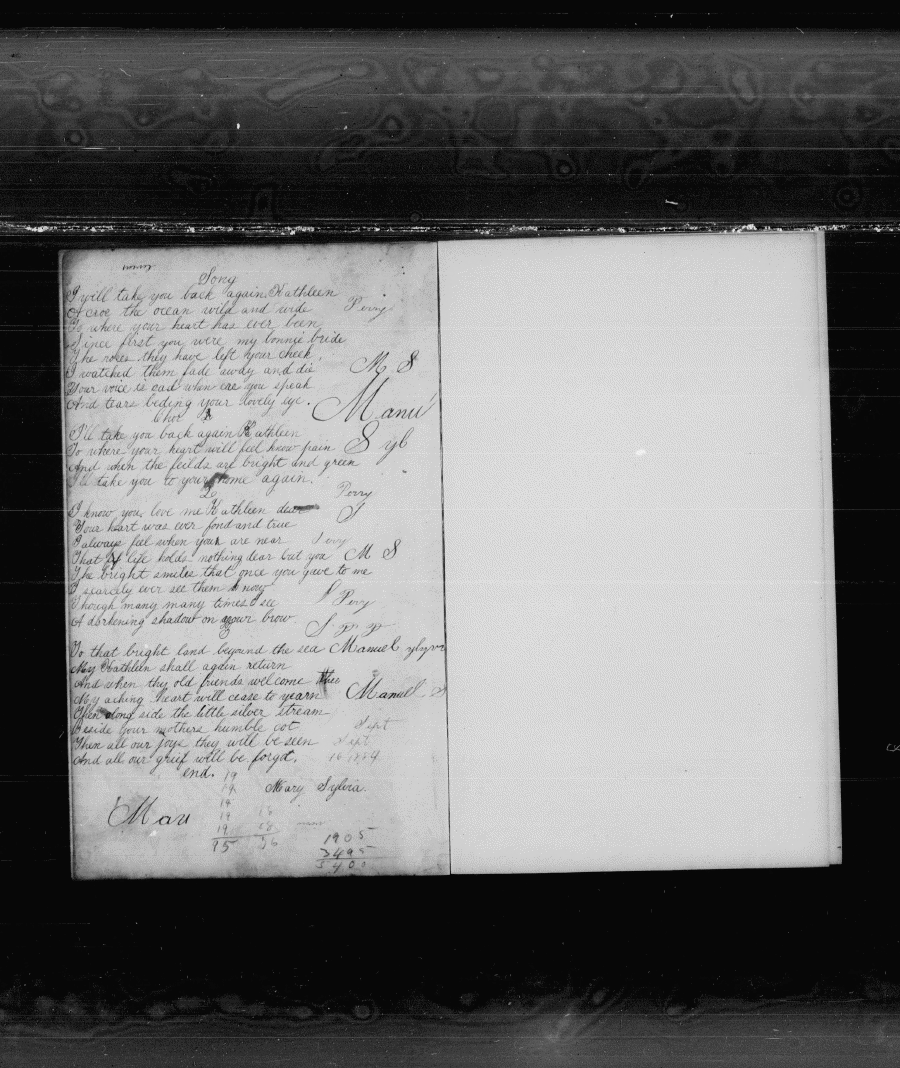 Song
I will take you back again Kathleen
Acroc the ocean wild and wide
To where your heart has ever been
Since first you were my bonnie bride
The roses they have left your cheek,
I watched them fade away and die
Your voice is cad when ear you speak
And tears beding your lovely eye.
Perry
M S
Manu
Chor
I'll take you back again Kathleen
To where your heart will feel know pain
And when the feilds are bright and green
I'll take you to your home again.
Syl
2
I know you love me Kathleen dear
Your heart was ever fond and true
I always feel when your are near
That life holds nothing dear but you
The bright smiles that once you gave to me
I scarcely ever see them now
Though many many times I see
A darkening shadow on your brow.
Perry
S
M S
Pery
3
To that bright land beyound the sea
My Kathleen shall again return
And when thy old friends welcome thee
My aching heart will cease to yearn
Then along side the little silver stream
Beside your mothers humble cot
Then all our joys they will be seen
And all our grief will be forgot.
end.
Manuel
Manuel S
Sept
Sept
Mary Sylvia.
Man
19
14
14
19
19
95
1905
3495
5400